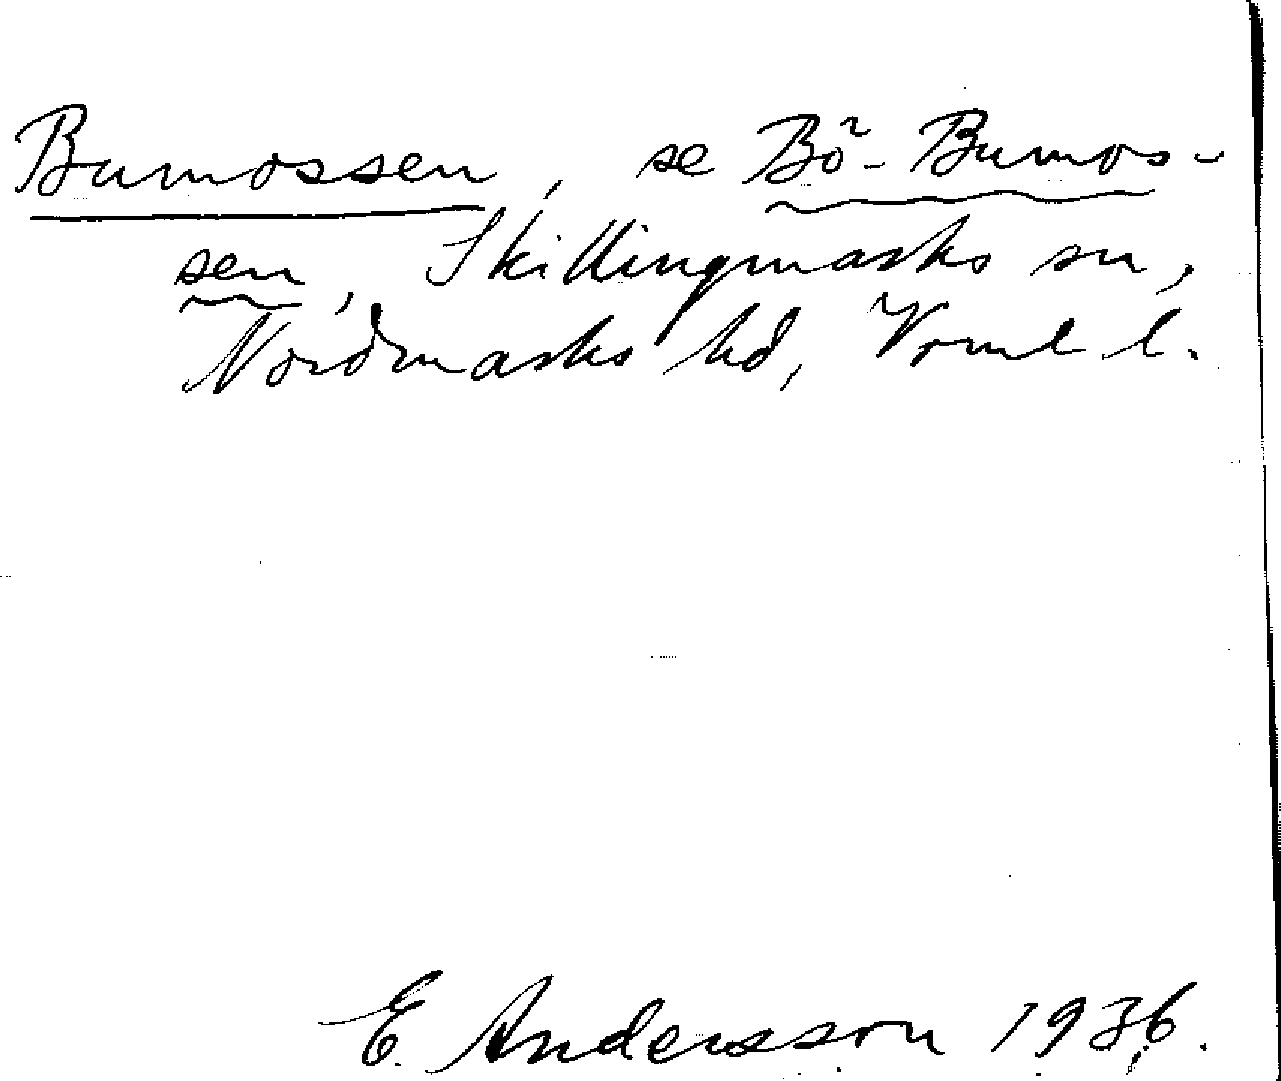 Bumossen, se Bö-Bumos-
sen, Skillingmarks sn,
Nordmarks hd, Vrml l.
E. Andersson 1936.